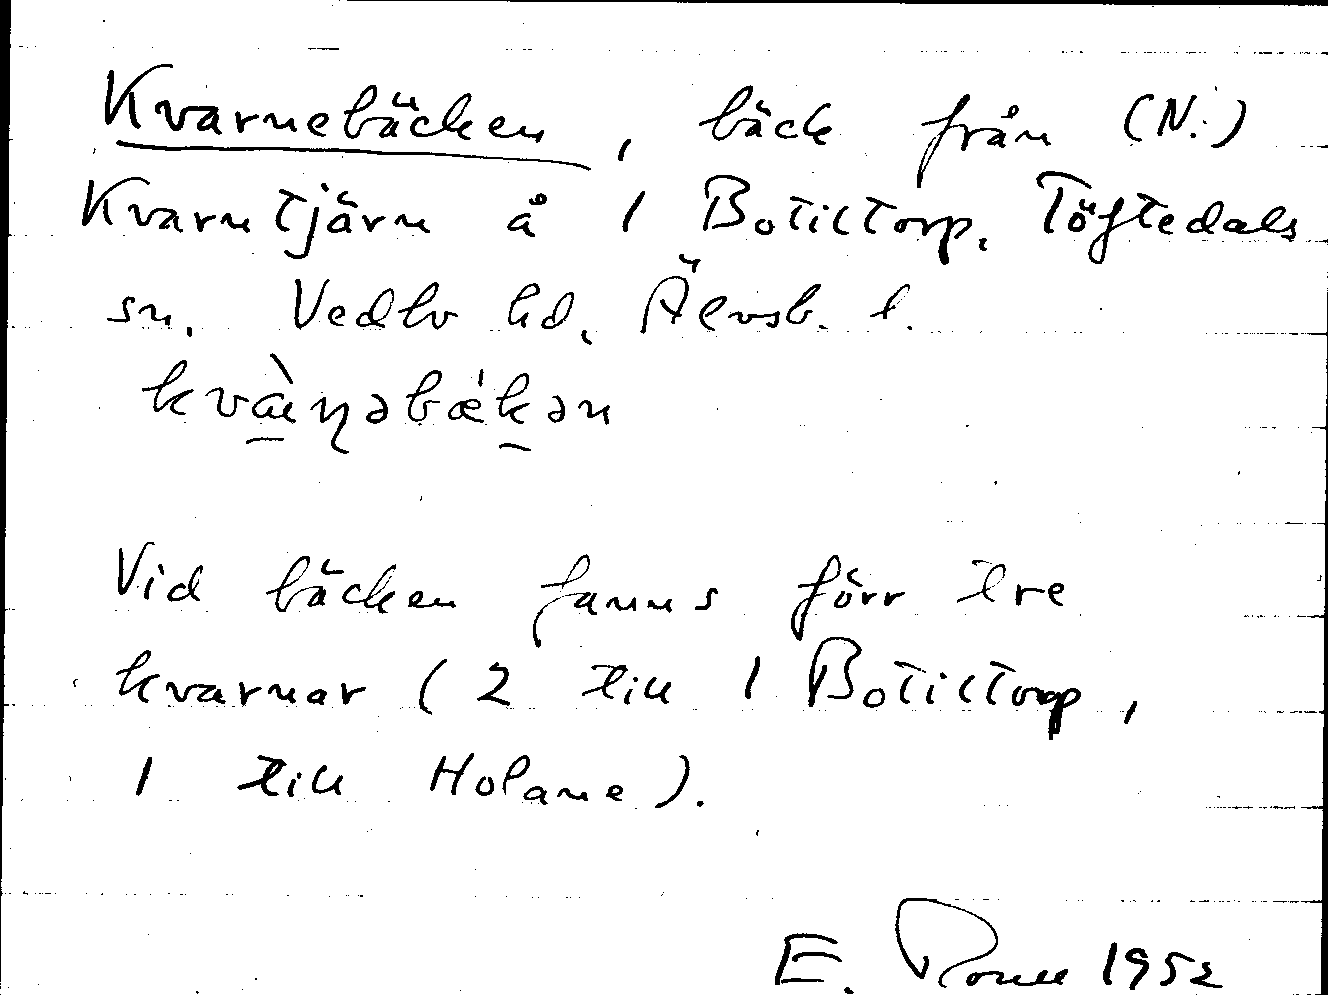 Kvarnebäcken, bäck från (N.)
Kvarntjärn å 1 Botiltorp. Töftedals
sn. Vedbo hd. Älvsb. l.
Vid bäcken fanns förr tre
kvarnar (2 till 1 Botiltorp,
1 till Holane).
E. 1952